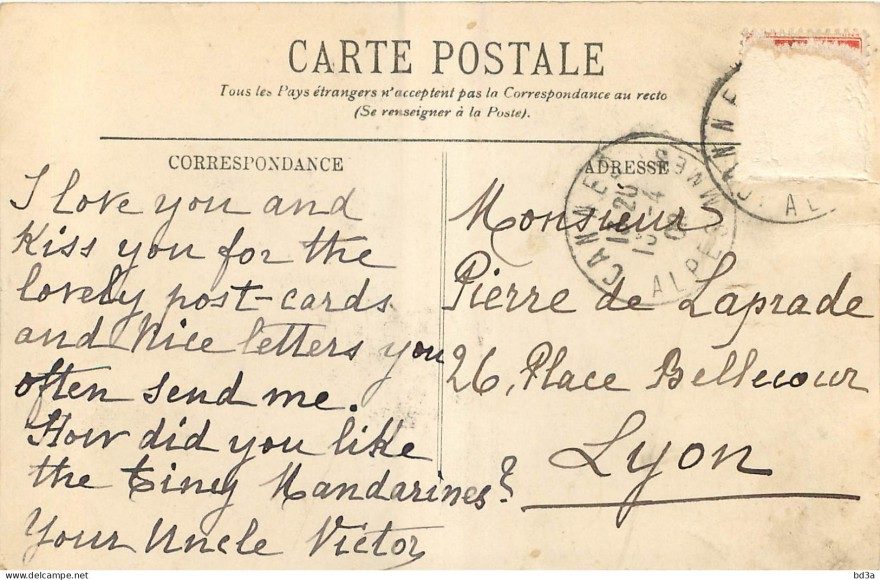 CARTE POSTALE
Tous les Pays étrangers n'acceptent pas la Correspondance au recto
(Se renseigner à la Poste).
CORRESPONDANCE
I love you and
kiss you for the
lovely post-cards
and nice letters you
often send me.
How did you like
the tiney Mandarines?
Your Uncle Victor
ADRESSE
Monsieur
Pierre de Laprade
26, Place Bellecour
Lyon
CANNES
ALPES MMES
CANNE
AL
delcampe.net
bd3a